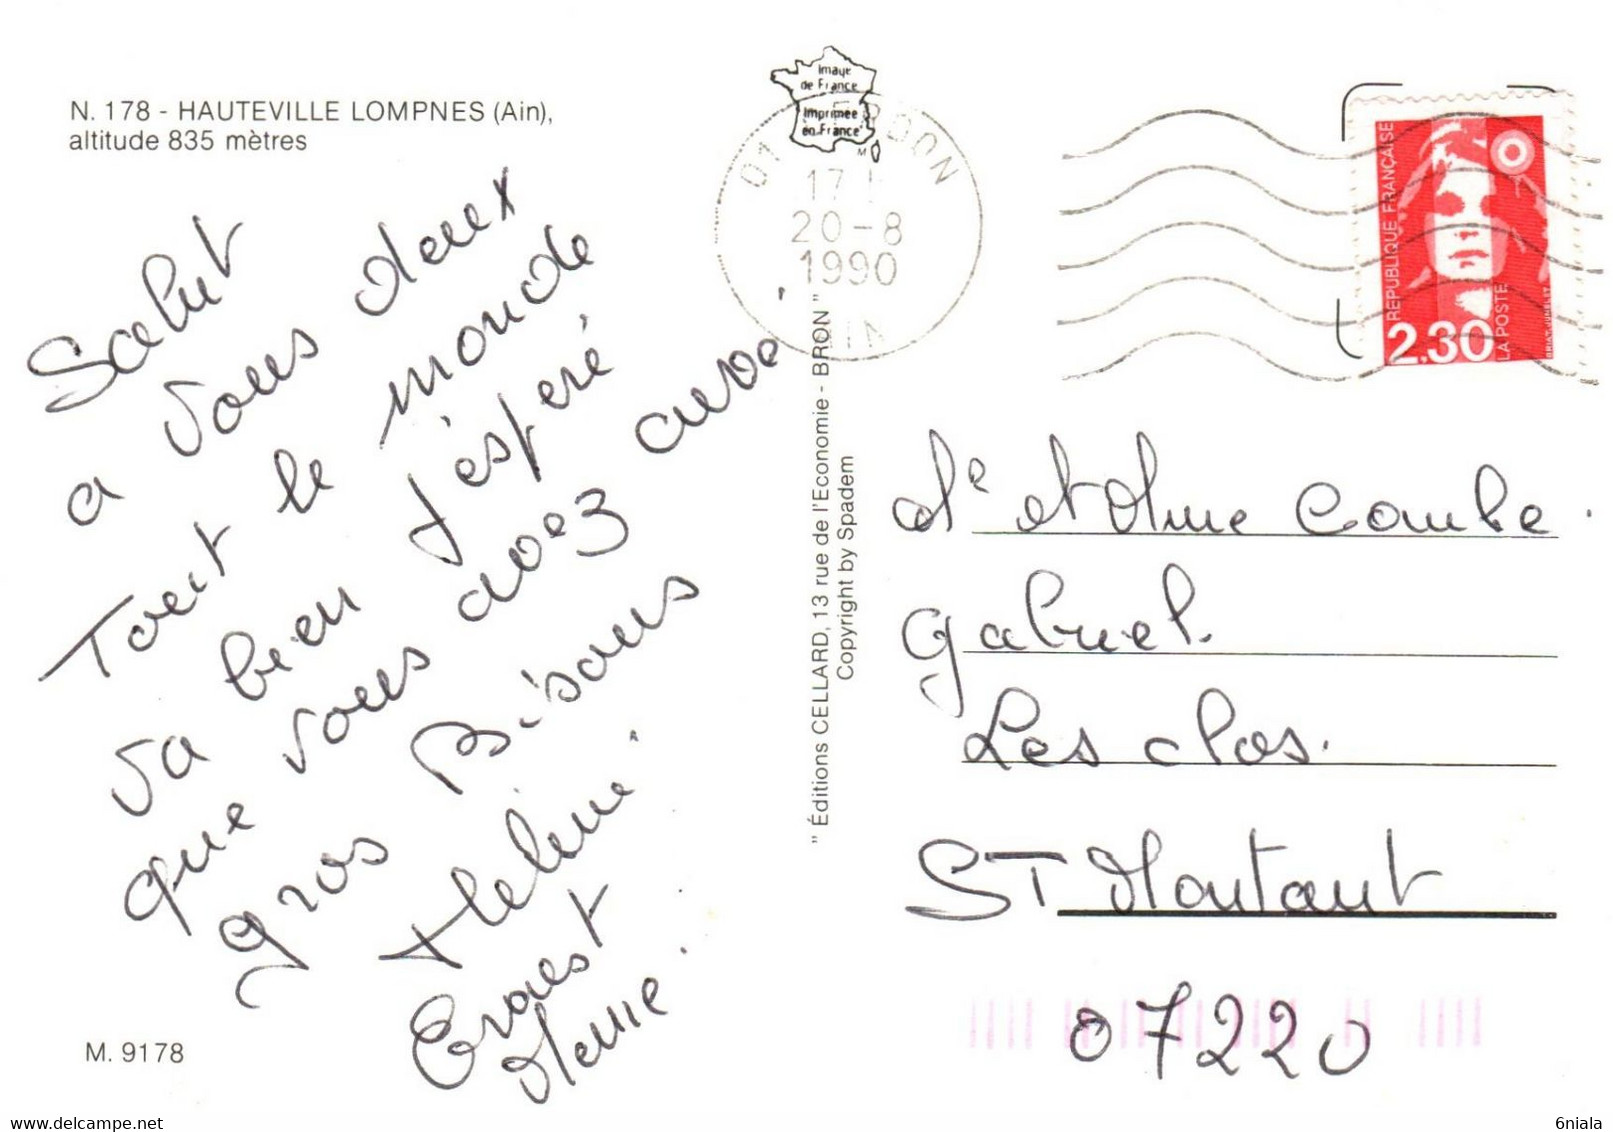 N. 178 - HAUTEVILLE LOMPNES (Ain),
altitude 835 mètres
Salut
a vous deux
Tout le monde
va bien j'espère
que vous avez aussi
gros bisous
Hélène
Ernest
Meme.
M. 9178
" Éditions CELLARD, 13 rue de l'Economie - BRON "
Copyright by Spadem
Image
de France
Imprimée
en France
M
01 CERDON
17 H
20-8
1990
AIN
RÉPUBLIQUE FRANÇAISE
2,30
LA POSTE
Mr et Mme Combe.
Gabriel.
Les clos.
ST Montant
07220
delcampe.net
6niala